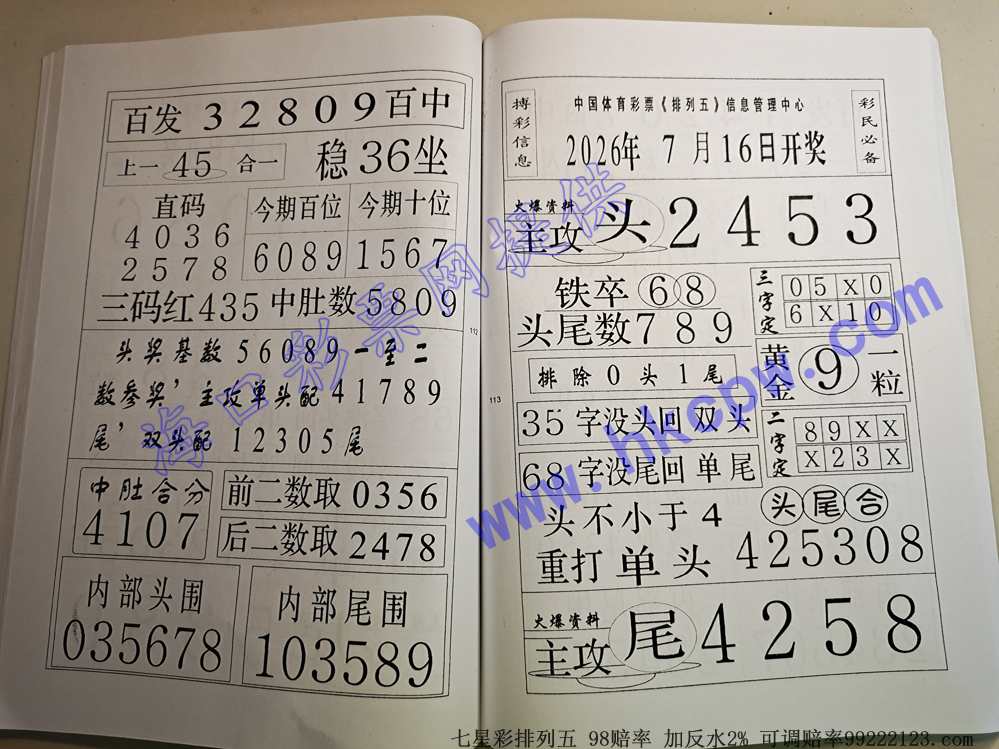 百发 32809 百中
上一 45 合一 稳36坐
直码
4036
2578
今期百位 今期十位
6089 1567
三码红435 中肚数5809
头奖基数56089一至二
数参奖’主攻单头配41789
尾’双头配12305尾
中肚合分
4107
前二数取 0356
后二数取 2478
内部头围
035678
内部尾围
103589
112
搏彩信息
中国体育彩票《排列五》信息管理中心
2026年 7 月16日开奖
彩民必备
火爆资料
主攻 头 2453
铁卒 68
头尾数789
三字定
05X0
6X10
排除0头1尾
黄金 9 一粒
35字没头回双头
68字没尾回单尾
二字定
89XX
X23X
头不小于4
头尾合
重打单头 425308
火爆资料
主攻 尾 4258
113
海口彩票网提供
www.hkcpw.com
七星彩排列五 98赔率 加反水2% 可调赔率99222123.com